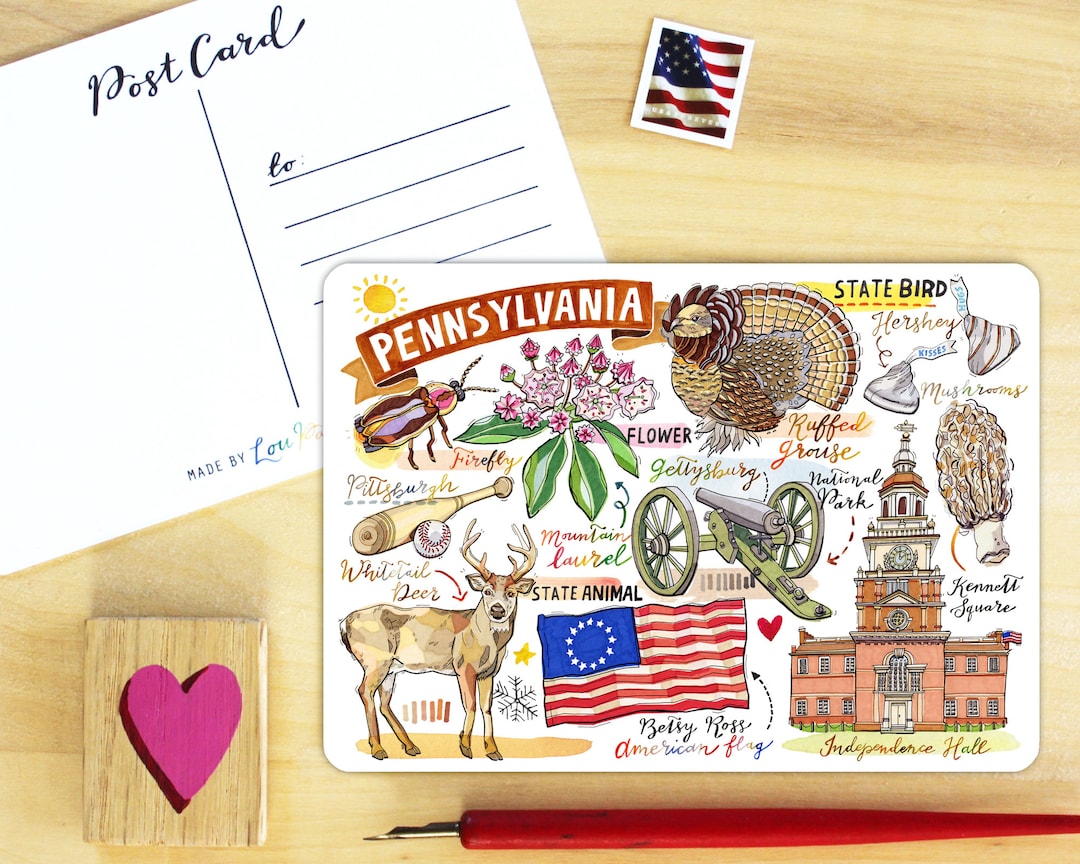 Post Card
to:
MADE BY Lou
USA FOREVER
PENNSYLVANIA
STATE BIRD
HUGS
Hershey
KISSES
Mushrooms
Firefly
FLOWER
Ruffed
grouse
Pittsburgh
Gettysburg
National
Park
Mountain
laurel
Whitetail
Deer
STATE ANIMAL
Kennett
Square
Betsy Ross
american flag
Independence Hall